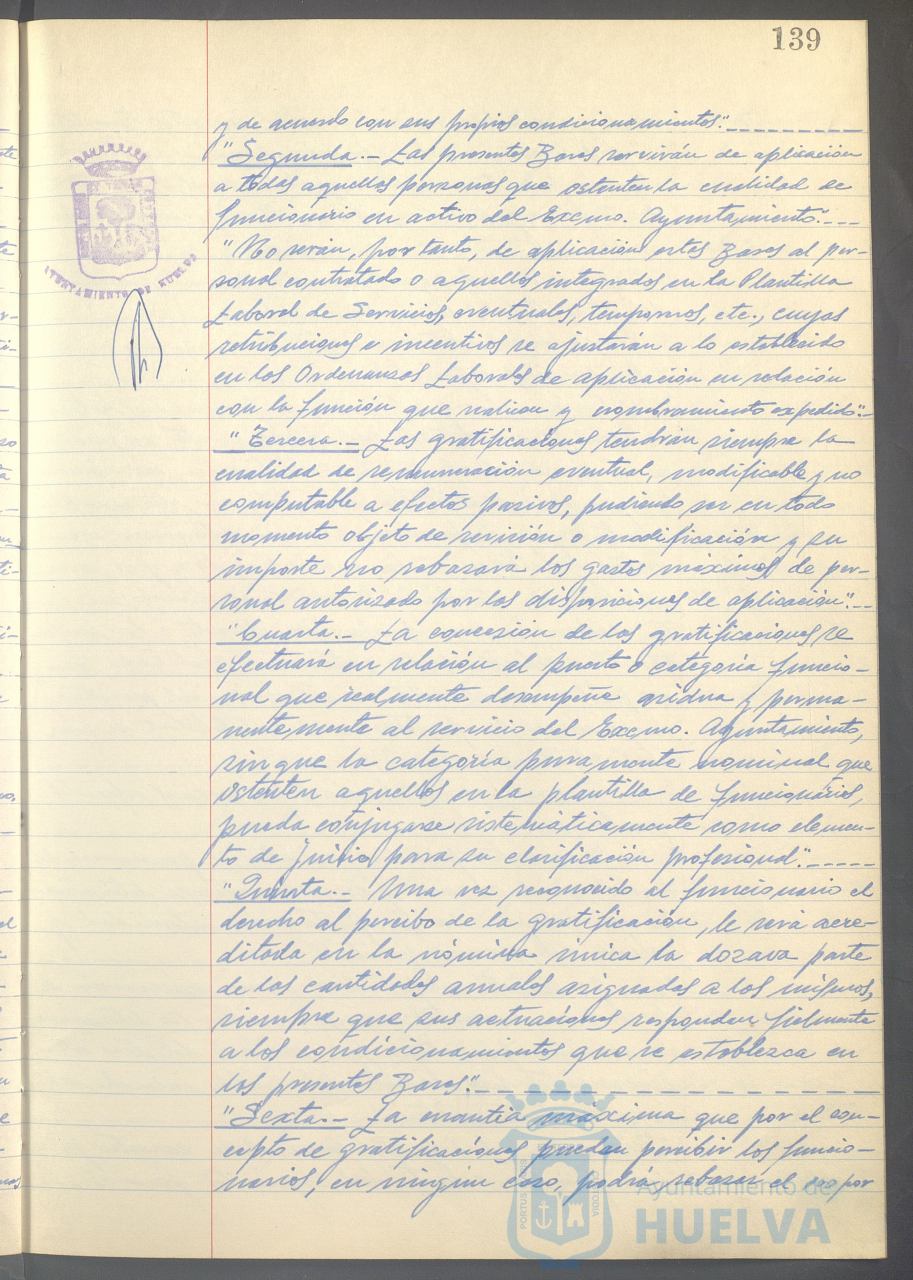 139
y de acuerdo con sus propios condicionamientos".
"Segunda.- Las presentes Bases servirán de aplicación
a todas aquellas personas que ostenten la cualidad de
funcionario en activo del Excmo. Ayuntamiento".
"No serán, por tanto, de aplicación estas Bases al per-
sonal contratado o aquellos integrados en la Plantilla
Laboral de Servicios, eventuales, temporeros, etc., cuyas
retribuciones e incentivos se ajustarán a lo establecido
en las Ordenanzas Laborales de aplicación en relación
con la función que realicen y nombramiento expedido".
"Tercera.- Las gratificaciones tendrán siempre la
cualidad de remuneración eventual, modificable y no
computable a efectos pasivos, pudiendo ser en todo
momento objeto de revisión o modificación y su
importe no rebasará los gastos máximos de per-
sonal autorizado por las disposiciones de aplicación".
"Cuarta.- La concesión de las gratificaciones se
efectuará en relación al puesto o categoría funcio-
nal que realmente desempeñe asidua y perma-
nentemente al servicio del Excmo. Ayuntamiento,
sin que la categoría puramente nominal que
ostenten aquellos en la plantilla de funcionarios,
pueda conjugarse sistemáticamente como elemen-
to de juicio para su clasificación profesional".
"Quinta.- Una vez reconocido al funcionario el
derecho al percibo de la gratificación, le será acre-
ditada en la nómina única la dozava parte
de las cantidades anuales asignadas a los mismos,
siempre que sus actuaciones respondan fielmente
a los condicionamientos que se establezca en
las presentes Bases".
"Sexta.- La cuantía máxima que por el con-
cepto de gratificaciones puedan percibir los funcio-
narios, en ningún caso, podrá rebasar el 100 por
AYUNTAMIENTO DE HUELVA
PORTUS
CUSTODIA
Ayuntamiento de
HUELVA